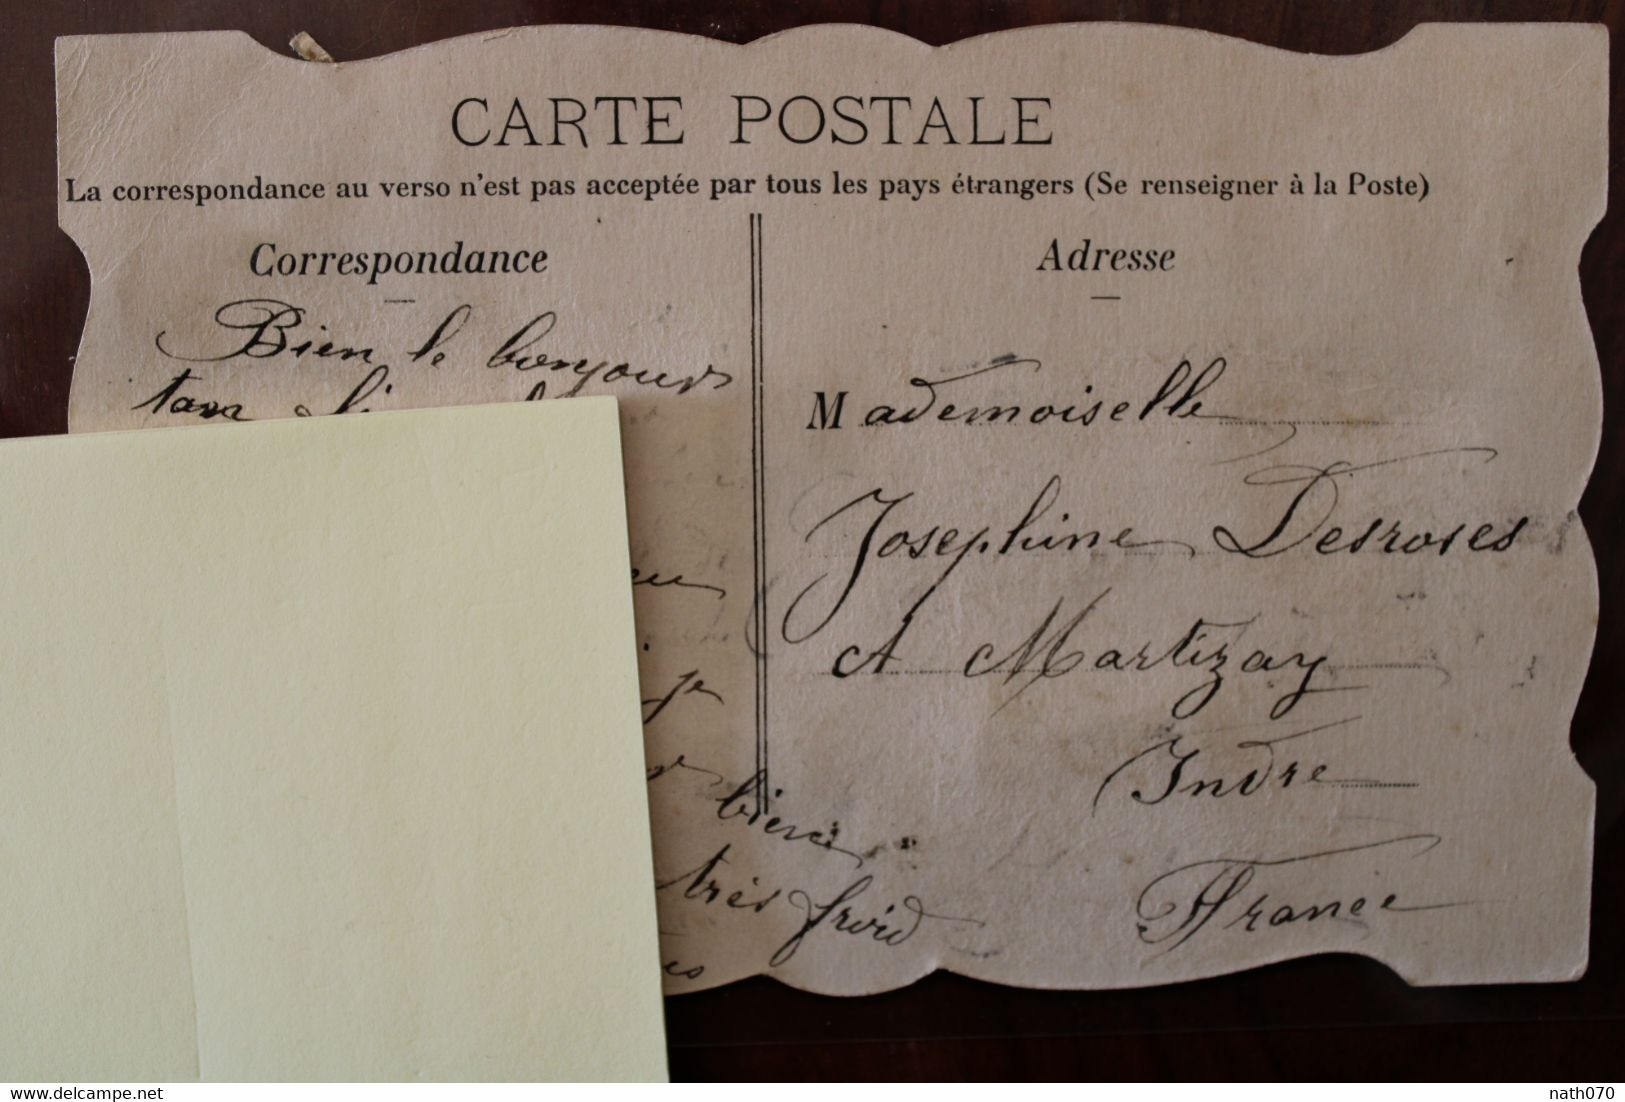 CARTE POSTALE
La correspondance au verso n'est pas acceptée par tous les pays étrangers (Se renseigner à la Poste)
Correspondance
Bien le bonjour
très froid
bien
je
Adresse
Mademoiselle
Josephine Desroses
A Martizay
Indre
France
nath070